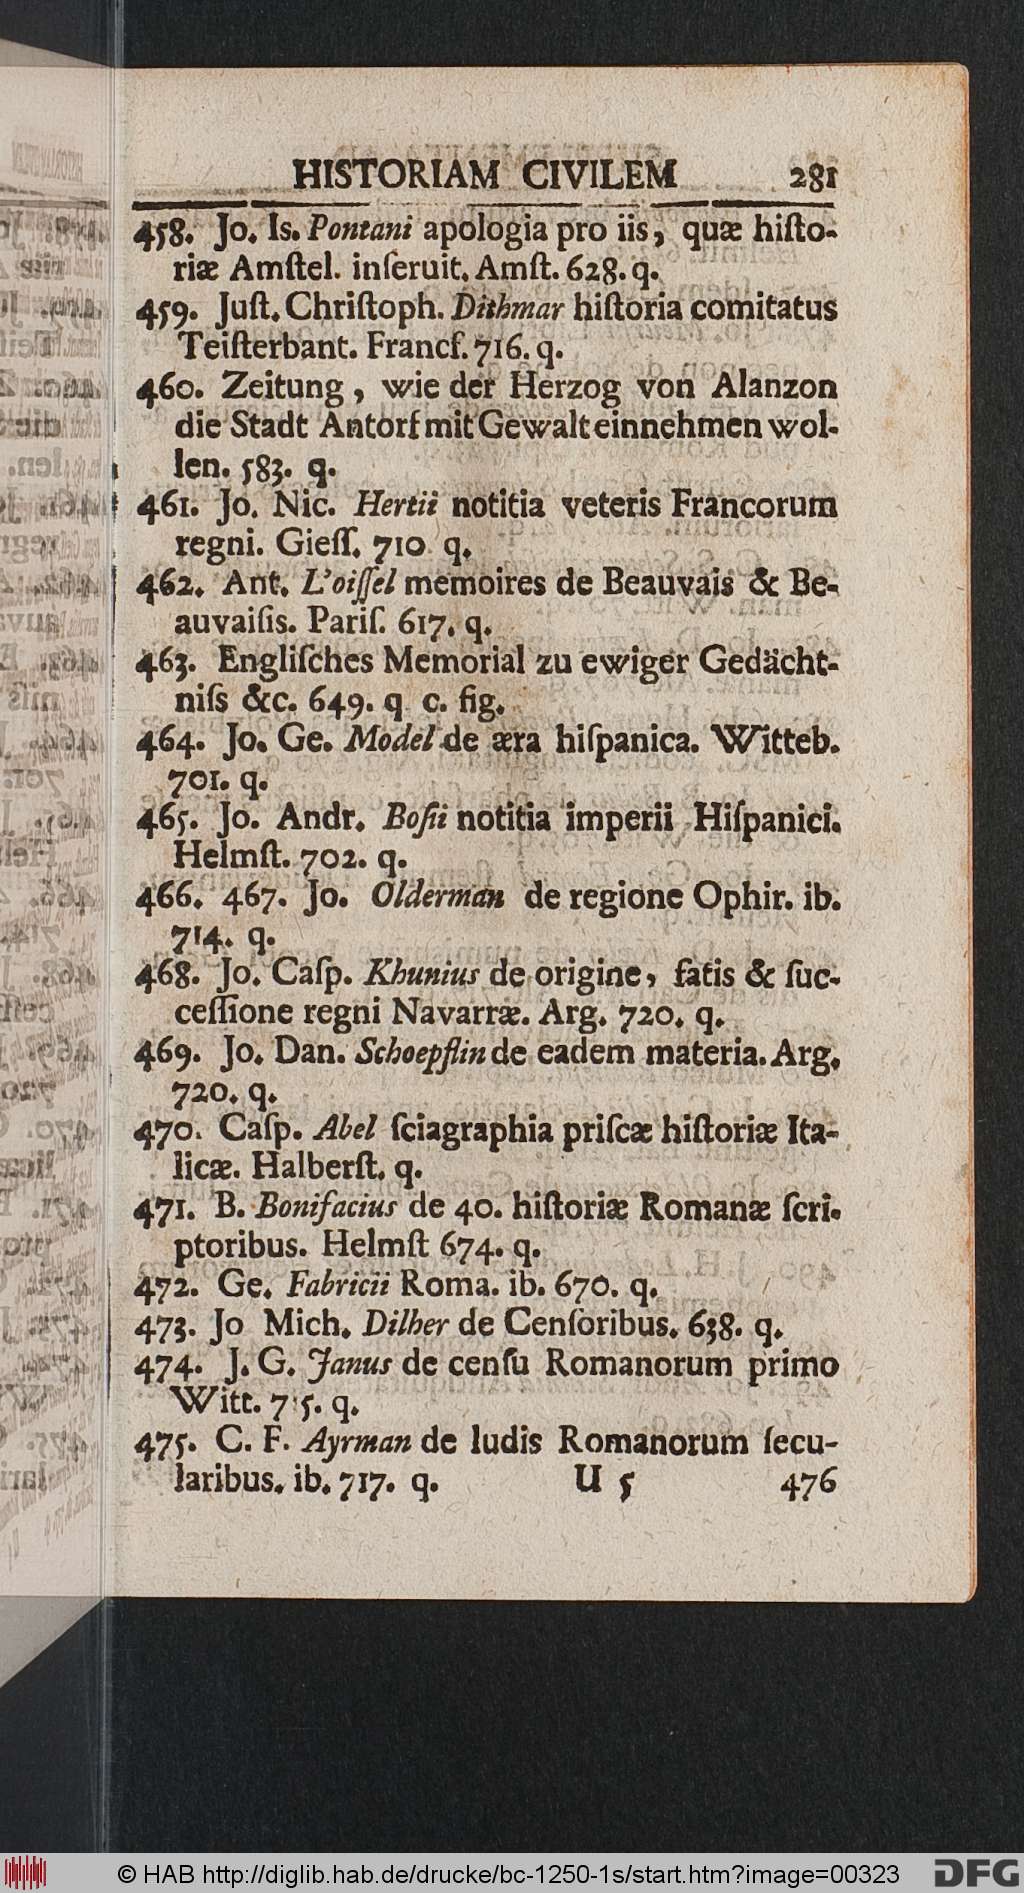 HISTORIAM CIVILEM 281
458. Jo. Is. Pontani apologia pro iis, quæ hiſto-
riæ Amſtel. inſeruit. Amſt. 628. q.
459. Juſt. Chriſtoph. Dithmar hiſtoria comitatus
Teiſterbant. Francf. 716. q.
460. Zeitung, wie der Herzog von Alanzon
die Stadt Antorf mit Gewalt einnehmen wol-
len. 583. q.
461. Jo. Nic. Hertii notitia veteris Francorum
regni. Gieſſ. 710 q.
462. Ant. L'oiſſel memoires de Beauvais & Be-
auvaiſis. Pariſ. 617. q.
463. Engliſches Memorial zu ewiger Gedächt-
niſs &c. 649. q c. fig.
464. Jo. Ge. Model de æra hiſpanica. Witteb.
701. q.
465. Jo. Andr. Boſii notitia imperii Hiſpanici.
Helmſt. 702. q.
466. 467. Jo. Olderman de regione Ophir. ib.
714. q.
468. Jo. Caſp. Khunius de origine, fatis & ſuc-
ceſſione regni Navarræ. Arg. 720. q.
469. Jo. Dan. Schoepflin de eadem materia. Arg.
720. q.
470. Caſp. Abel ſciagraphia priſcæ hiſtoriæ Ita-
licæ. Halberſt. q.
471. B. Bonifacius de 40. hiſtoriæ Romanæ ſcri-
ptoribus. Helmſt 674. q.
472. Ge. Fabricii Roma. ib. 670. q.
473. Jo Mich. Dilher de Cenſoribus. 638. q.
474. J. G. Janus de cenſu Romanorum primo
Witt. 715. q.
475. C. F. Ayrman de ludis Romanorum ſecu-
laribus. ib. 717. q. U 5 476
© HAB http://diglib.hab.de/drucke/bc-1250-1s/start.htm?image=00323 DFG